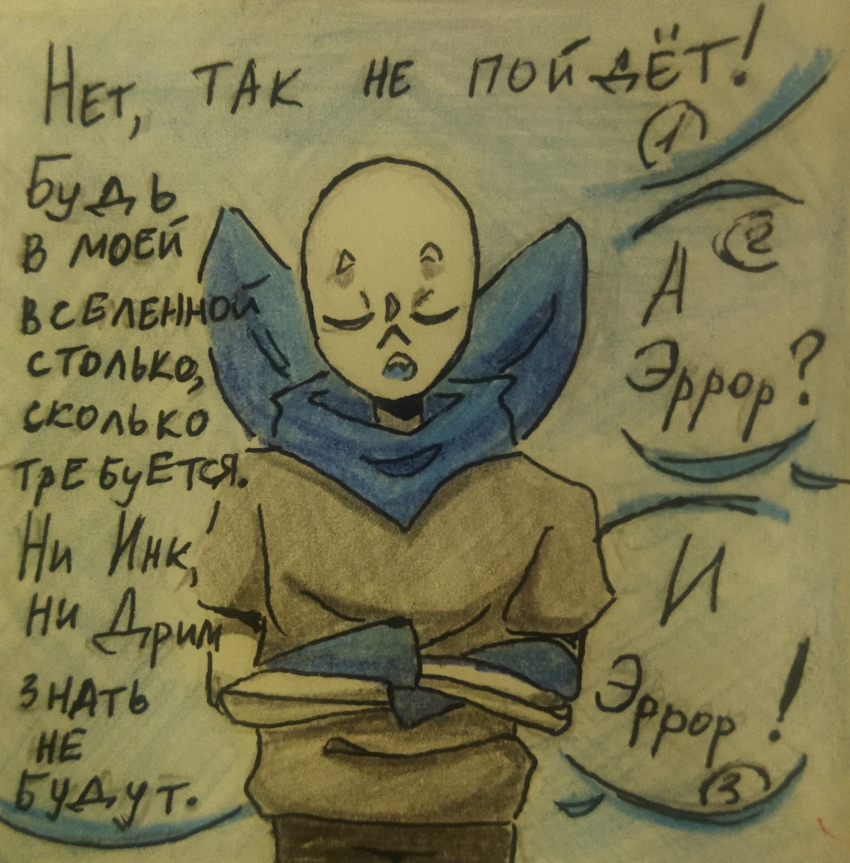 Нет, так не пойдёт!
1
Будь
в моей
вселенной
столько,
сколько
требуется.
Ни Инк,
ни Дрим
знать
не
будут.
2
А
Эррор?
И
Эррор!
3